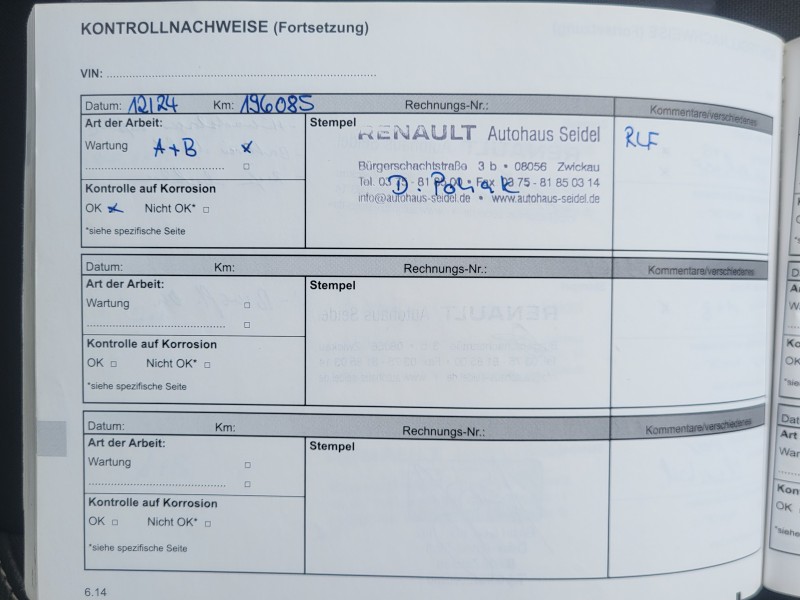 KONTROLLNACHWEISE (Fortsetzung)
VIN:
Datum: 12/24 Km: 196085 Rechnungs-Nr.: Kommentare/verschiedenes
Art der Arbeit: Stempel
Wartung A+B x
RENAULT Autohaus Seidel
RLF
Bürgerschachtstraße 3 b • 08056 Zwickau
Tel. 03 75 - 81 85 00 • Fax 03 75 - 81 85 03 14
D. Poliak
info@autohaus-seidel.de • www.autohaus-seidel.de
Kontrolle auf Korrosion
OK x Nicht OK*
*siehe spezifische Seite
Datum: Km: Rechnungs-Nr.: Kommentare/verschiedenes
Art der Arbeit: Stempel
Wartung
Kontrolle auf Korrosion
OK Nicht OK*
*siehe spezifische Seite
Datum: Km: Rechnungs-Nr.: Kommentare/verschiedenes
Art der Arbeit: Stempel
Wartung
Kontrolle auf Korrosion
OK Nicht OK*
*siehe spezifische Seite
6.14